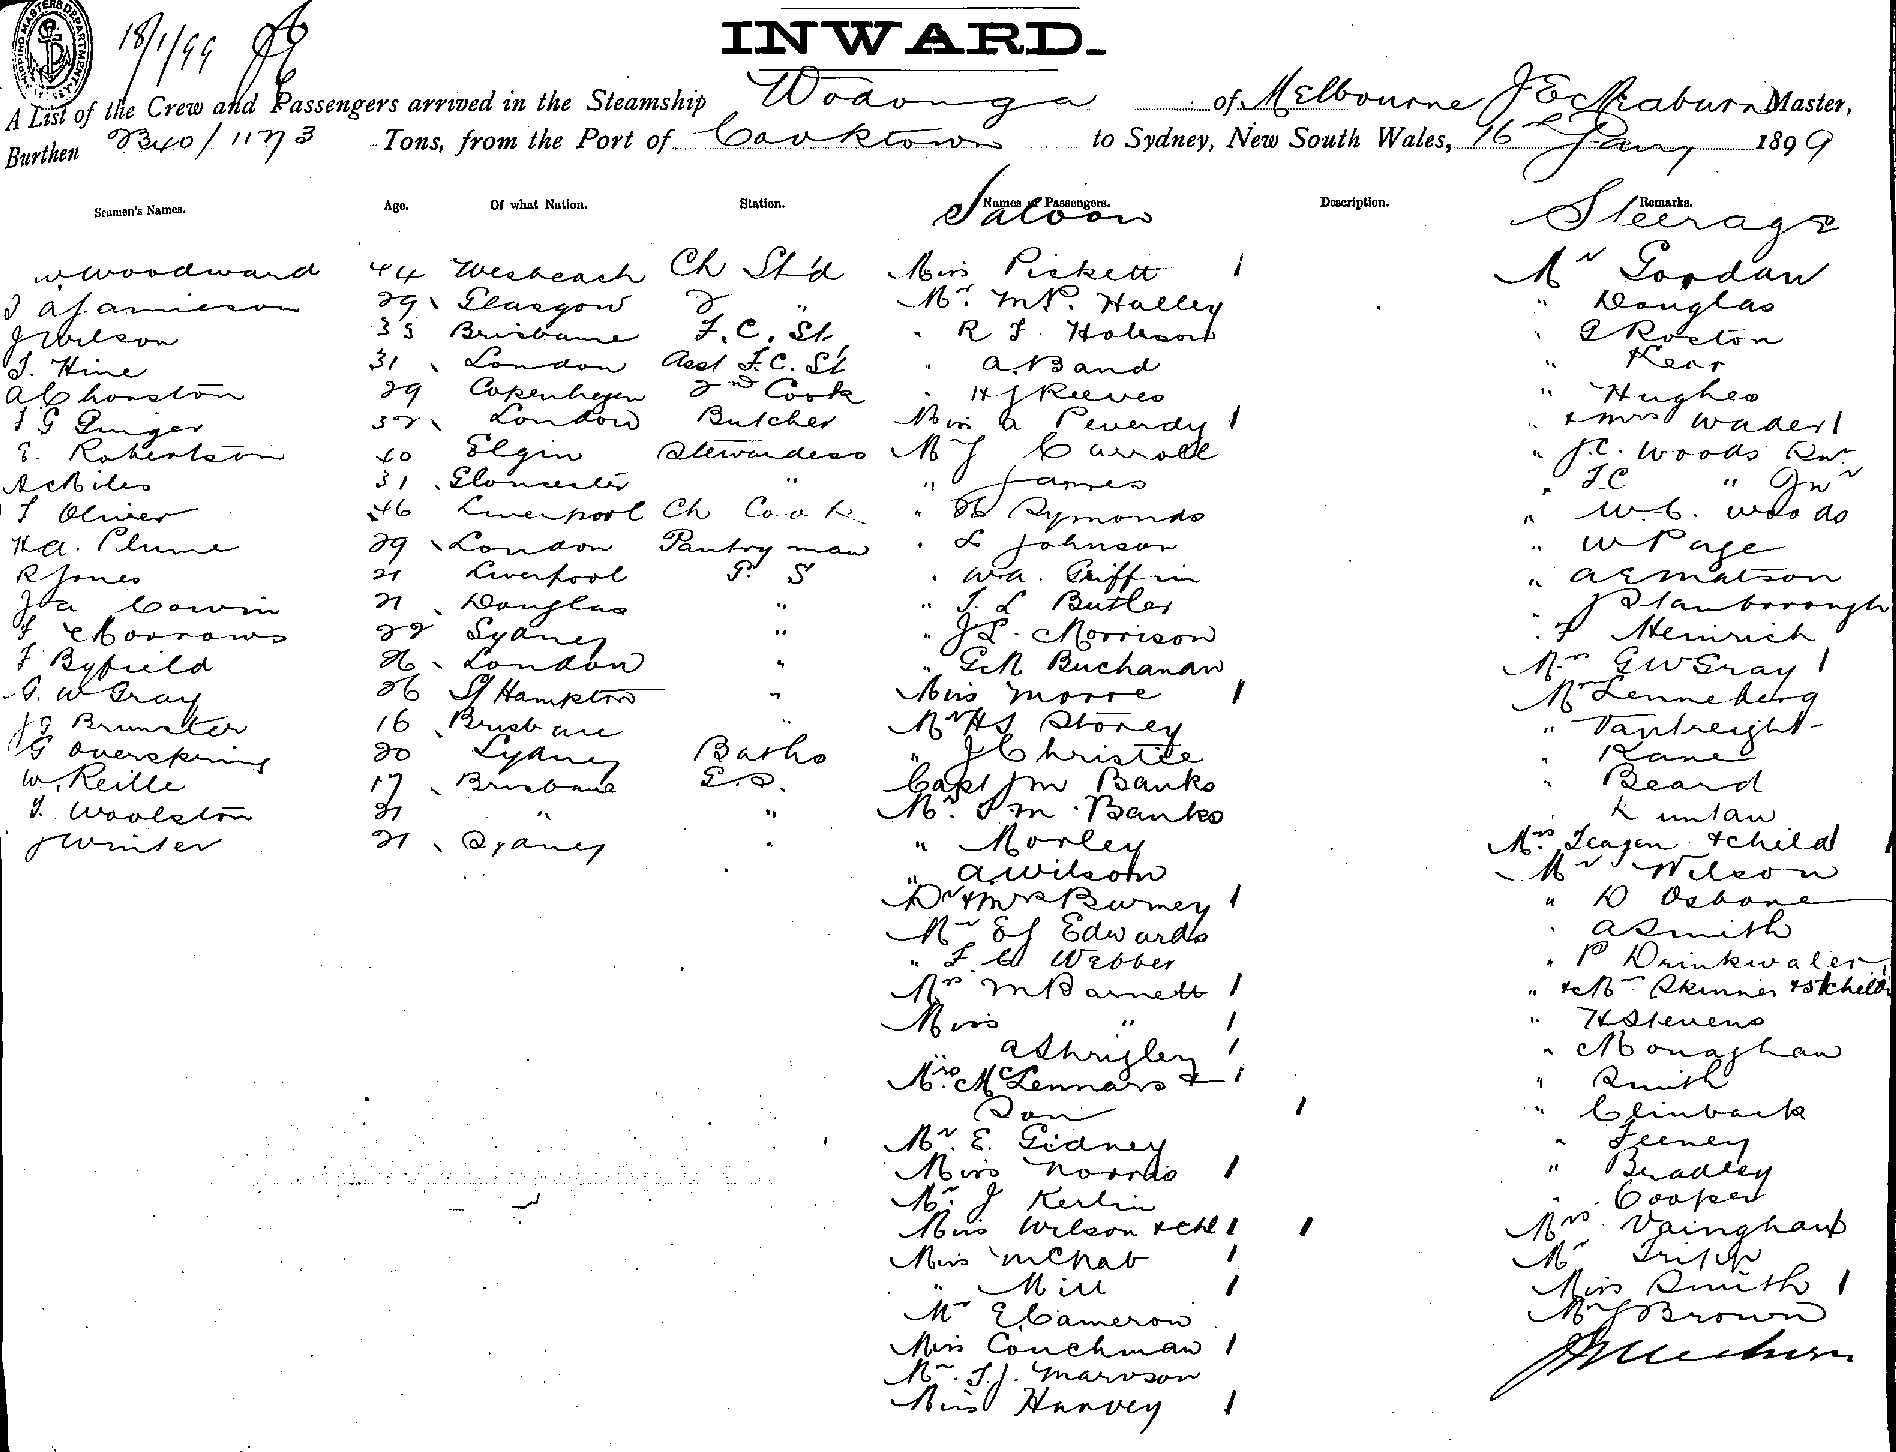 18/1/99
INWARD.
A List of the Crew and Passengers arrived in the Steamship Wodonga of Melbourne Master,
Burthen 1173 Tons, from the Port of Cooktown to Sydney, New South Wales, 16th Jany 1899
Seamen's Names. Age. Of what Nation. Station. Names of Passengers. Description. Remarks.
Saloon Steerage
W. Woodward 44 Wesbeach Ch St'd Miss Piskett 1 Mr Gordan
J A Jamieson 29 Glasgow 2 " Mr. Halley " Douglas
J Wilson 33 Brisbane F.C. St " R F Hobson " G Roston
F. Hine 31 London Asst F.C. St " A. Band " Kear
A Chorston 29 Copenhagen 2nd Cook " H J Reeves " Hughes
G Ginger 32 London Butcher Miss A Peverdy 1 " & Mrs Wader 1
E. Robertson 40 Elgin Stewardess Mr J Carroll " J.C. Woods Snr
A C Biles 31 Gloucester " " James " F C " Jnr
F Oliver 46 Liverpool Ch Cook " H Symonds " W.C. Woods
H A. Plume 29 London Pantryman " L Johnson " W Page
R Jones 21 Liverpool F. S " W.A. Griffin " A E Matson
J A Cowin 21 Douglas " " F. L Butler " J Stanborough
F Morrows 22 Sydney " " J L. Morrison " F Heinrich
F Byfield 26 London " " G M Buchanan Mrs G W Gray 1
G. W Gray 26 St Hampton " Miss Moore 1 Mr Lenneberg
J G Brunster 16 Brisbane " Mr H S Storey " Vantreight
G Overskring 20 Sydney Baths " J Christie " Kane
W. Reille 17 Brisbane G.S. Capt J M Banks " Beard
F. Woolston 21 " " Mr. F M. Banks "
J Winter 21 Sydney " " Morley Mrs. Teagen & child 1
" A Wilson Mr Wilson
Dr & Mrs Burney 1 " D Osbone
Mr E J Edwards " A Smith
" F. C Webber " P Drinkwater
Mrs M Barnett 1 " & Mrs Skinner & 5 child
Miss " 1 " H Stevens
" A Shrigley 1 " Monaghan
Mrs. McLennars & 1 " Smith
Son 1 " Clinback
Mr. E. Gidney " Feeney
Miss Norris 1 " Bradley
Mr. J Kerlin " Cooper
Miss Wilson & chl 1 1 Mrs. Vainghan
Miss McNab 1 Mr Tripp
" Mill 1 Miss Smith 1
Mr E. Cameron Mr J Brown
Miss Couchman 1
Mr. F. J. Marvson
Miss Harvey 1